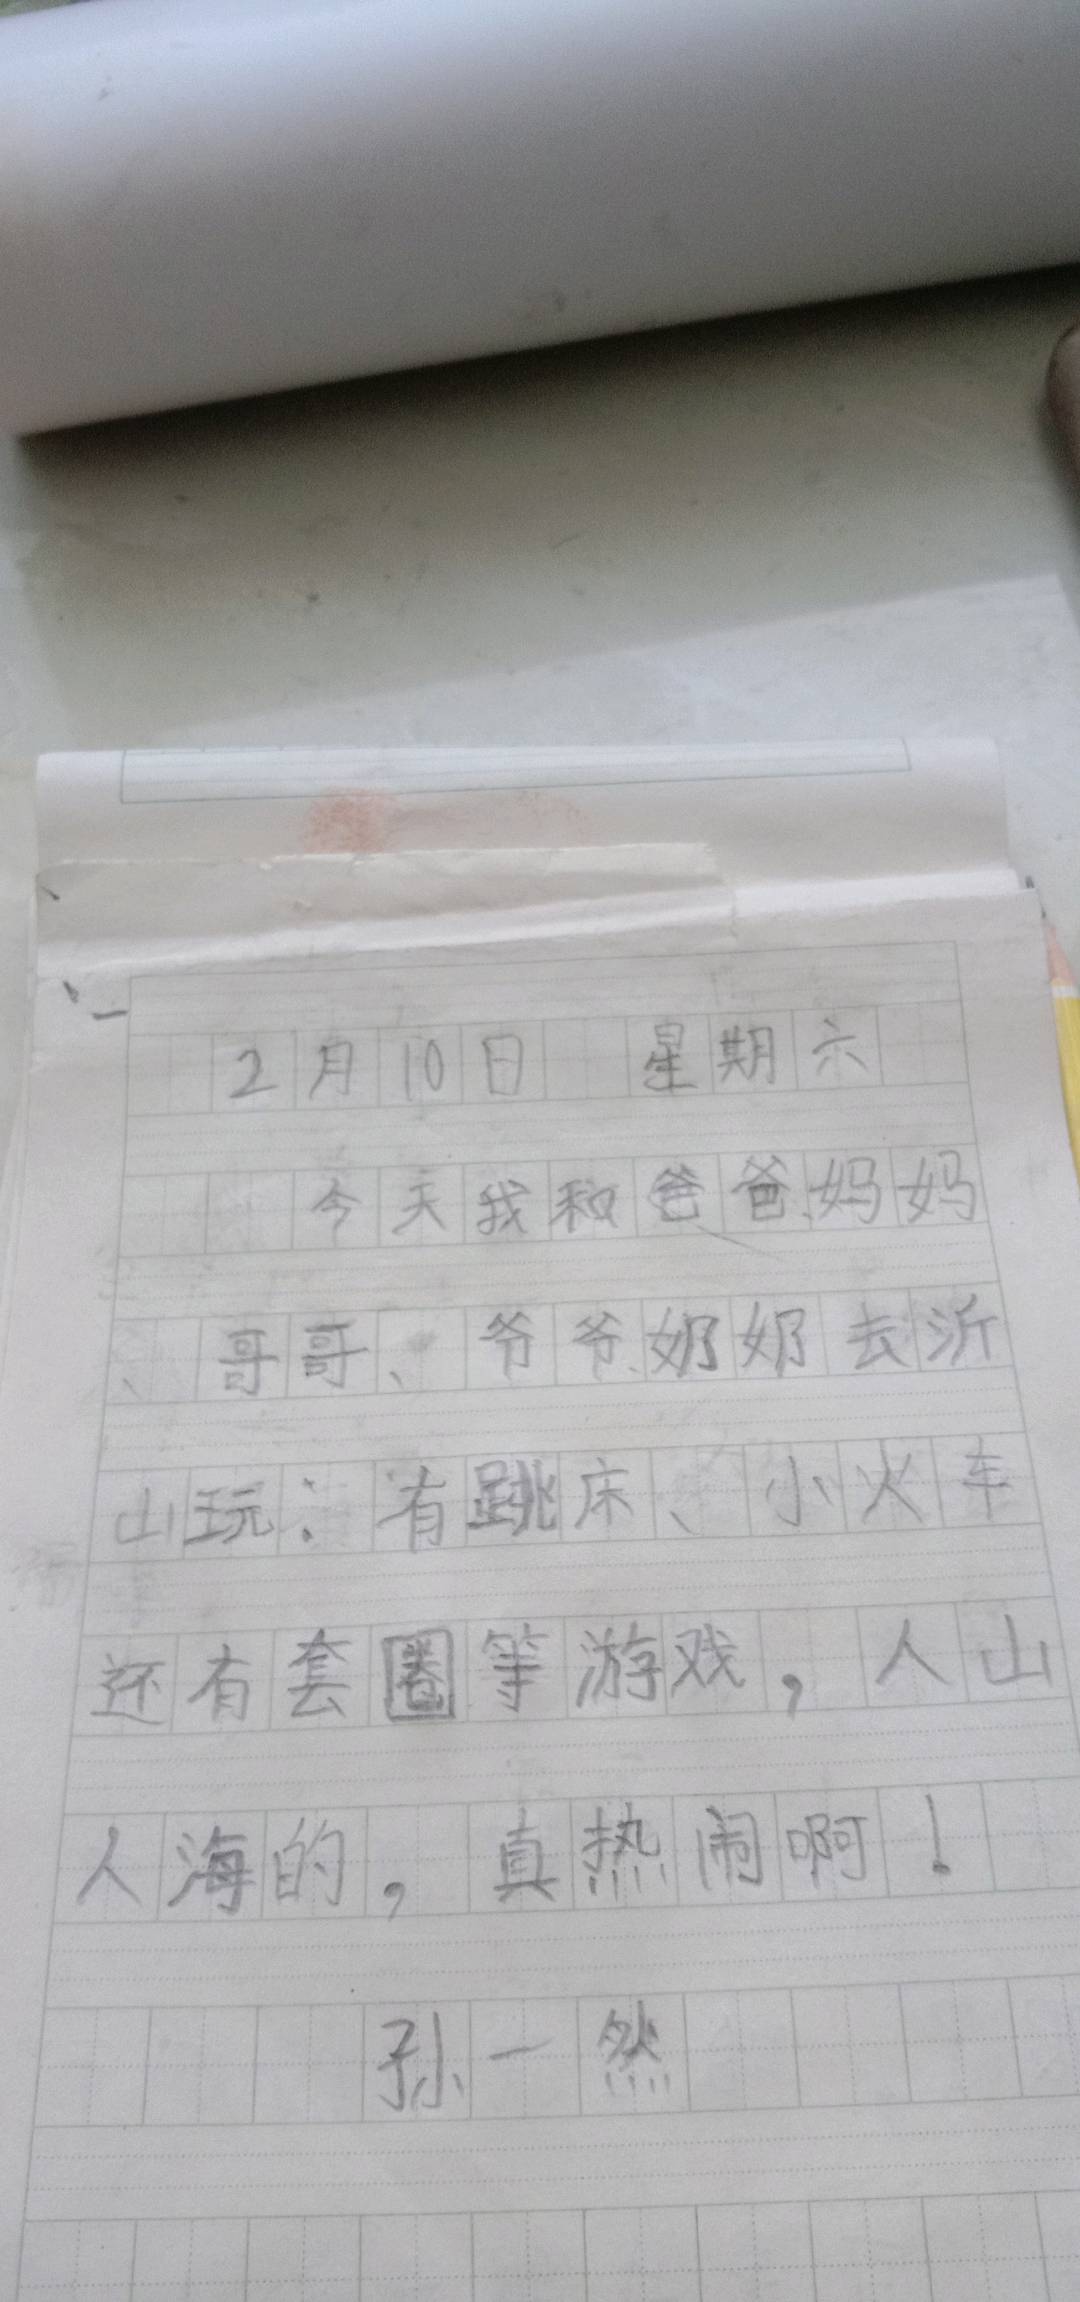 2月10日 星期六
今天我和爸爸、妈妈
、哥哥、爷爷、奶奶去沂
山玩:有跳床、小火车
还有套圈等游戏,人山
人海的,真热闹啊!
孙一然